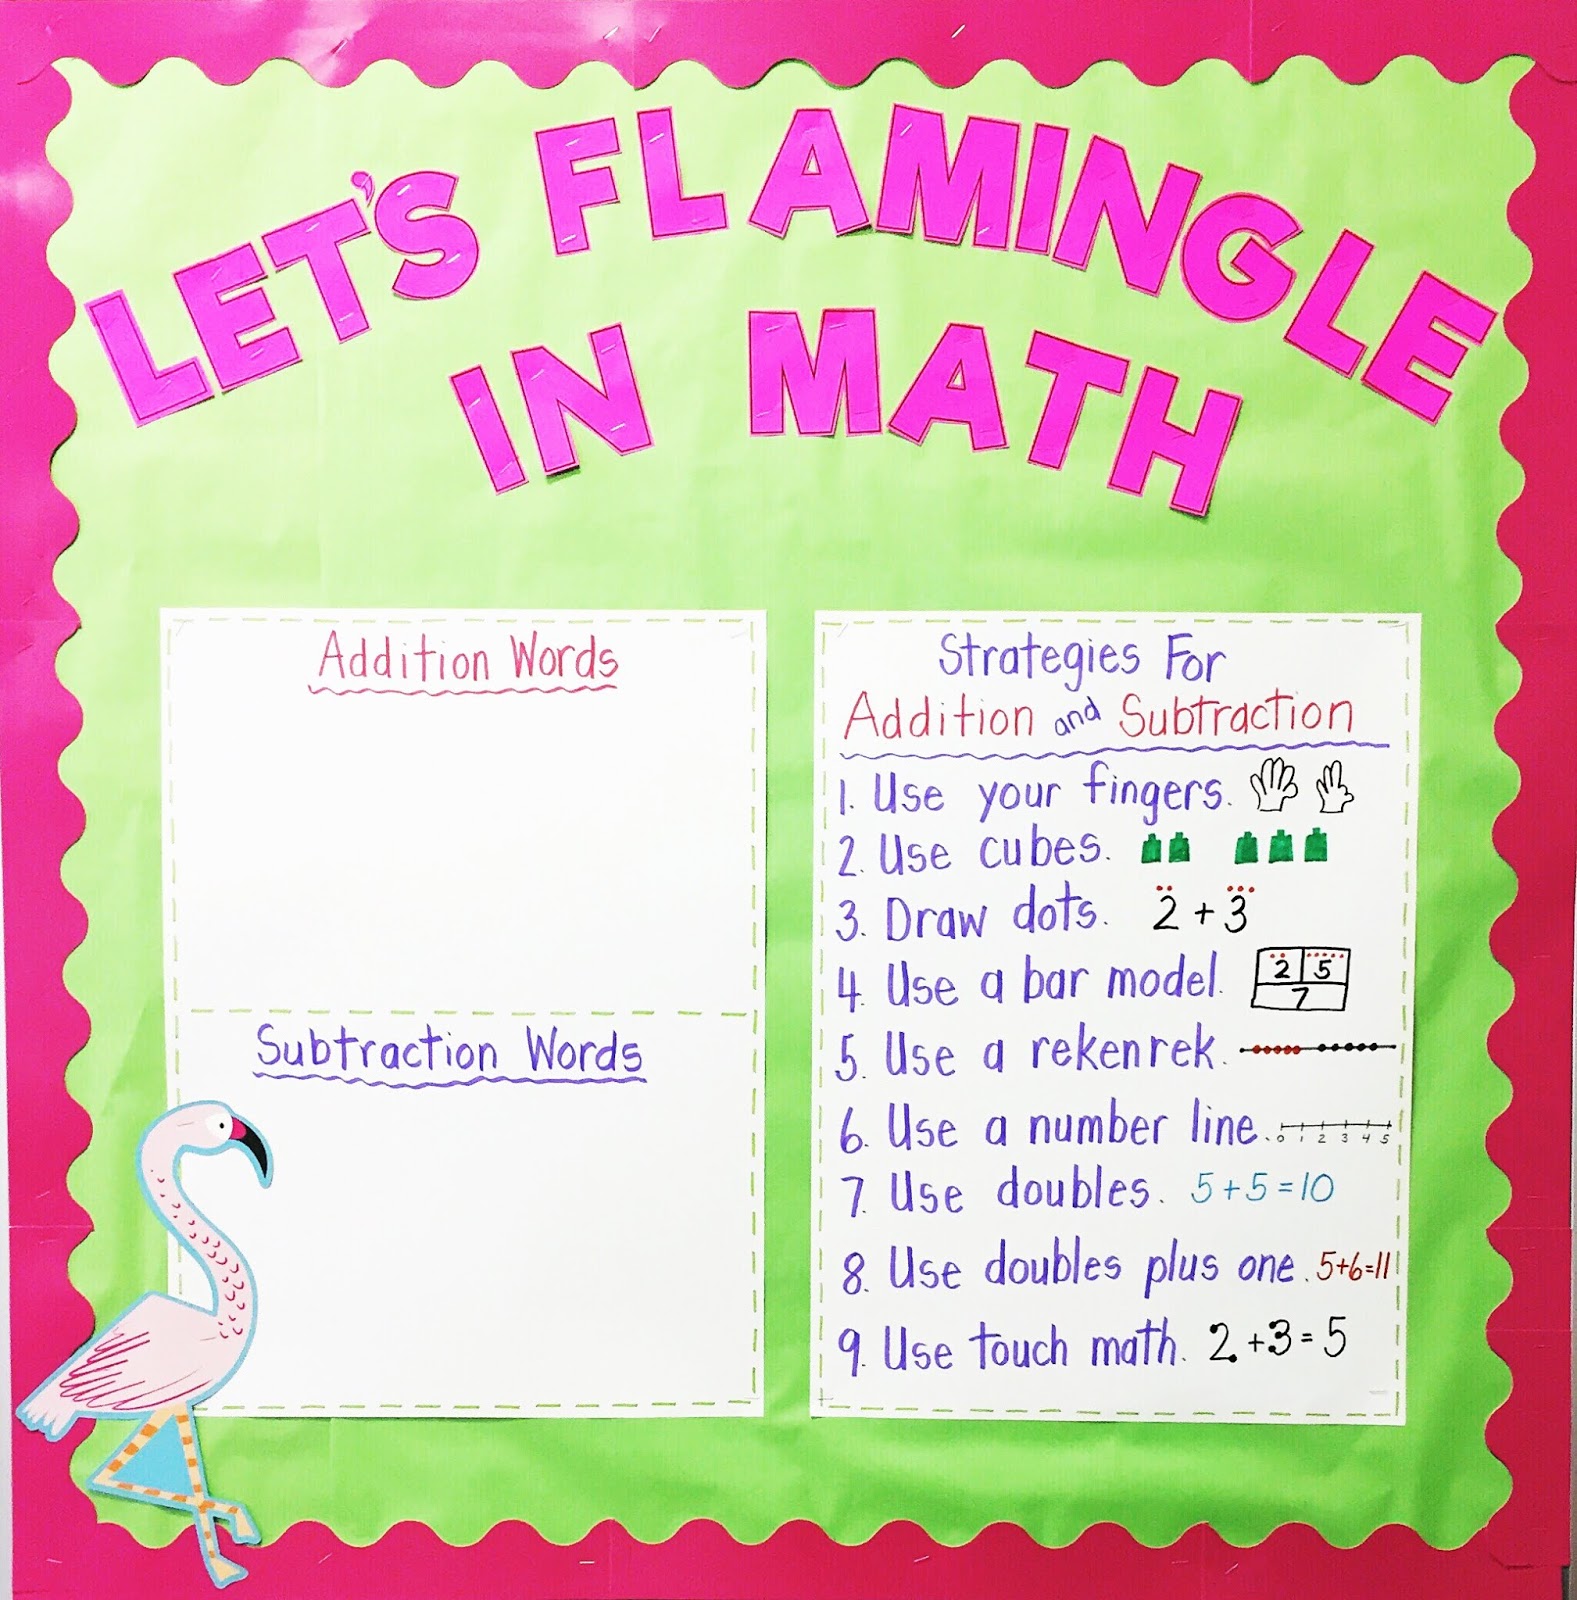 LET'S FLAMINGLE
IN MATH
Addition Words
Subtraction Words
Strategies For
Addition and Subtraction
1. Use your fingers.
2. Use cubes.
3. Draw dots. 2 + 3
4. Use a bar model. 2 5
7
5. Use a rekenrek.
6. Use a number line. 0 1 2 3 4 5
7. Use doubles. 5+5=10
8. Use doubles plus one. 5+6=11
9. Use touch math. 2+3=5